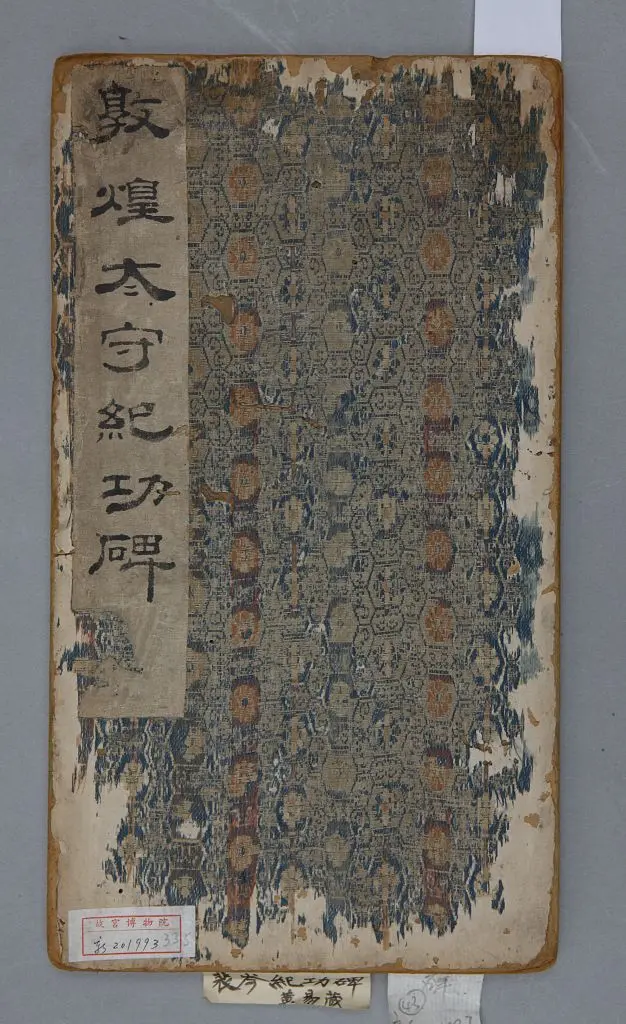 敦煌太守紀功碑
故宮博物院
新201993
裴岑紀功碑
黃易藏